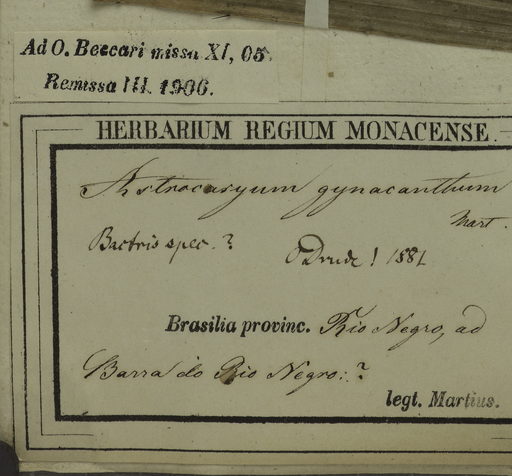 Ad O. Beccari missa XI, 05.
Remissa III. 1906.
HERBARIUM REGIUM MONACENSE.
Astrocaryum gynacanthum
Mart.
Bactris spec. ? ODrude! 1881
Brasilia provinc. Rio Negro, ad
Barra do Rio Negro: ?
legt. Martius.